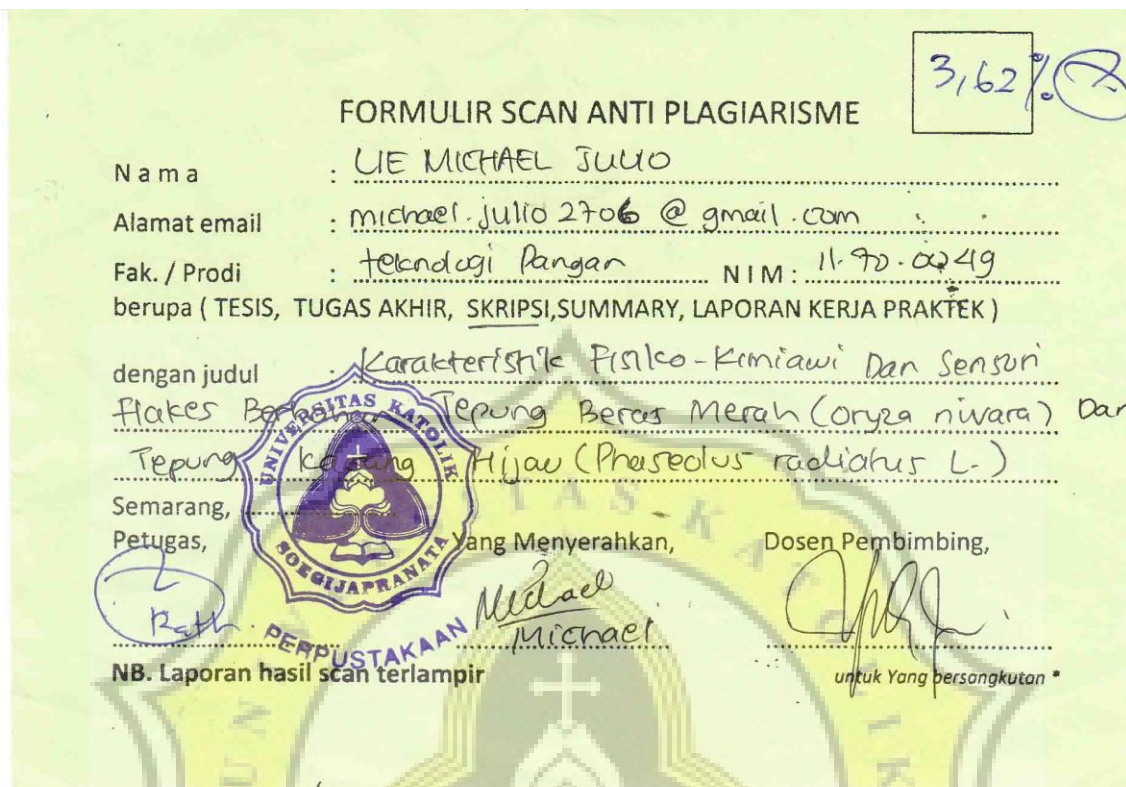 3,62%
FORMULIR SCAN ANTI PLAGIARISME
Nama : LIE MICHAEL JULIO
Alamat email : michael.julio2706@gmail.com
Fak. / Prodi : teknologi Pangan NIM : 11.70.0049
berupa ( TESIS, TUGAS AKHIR, SKRIPSI,SUMMARY, LAPORAN KERJA PRAKTEK )
dengan judul : Karakteristik Fisiko-Kimiawi Dan Sensori
flakes Berbahan Tepung Beras Merah (oryza nivara) Dan
Tepung Kacang Hijau (Phaseolus radiatus L.)
Semarang,
Petugas, Yang Menyerahkan, Dosen Pembimbing,
UNIVERSITAS KATOLIK
SOEGIJAPRANATA
PERPUSTAKAAN
Michael
Michael
NB. Laporan hasil scan terlampir untuk Yang bersangkutan *